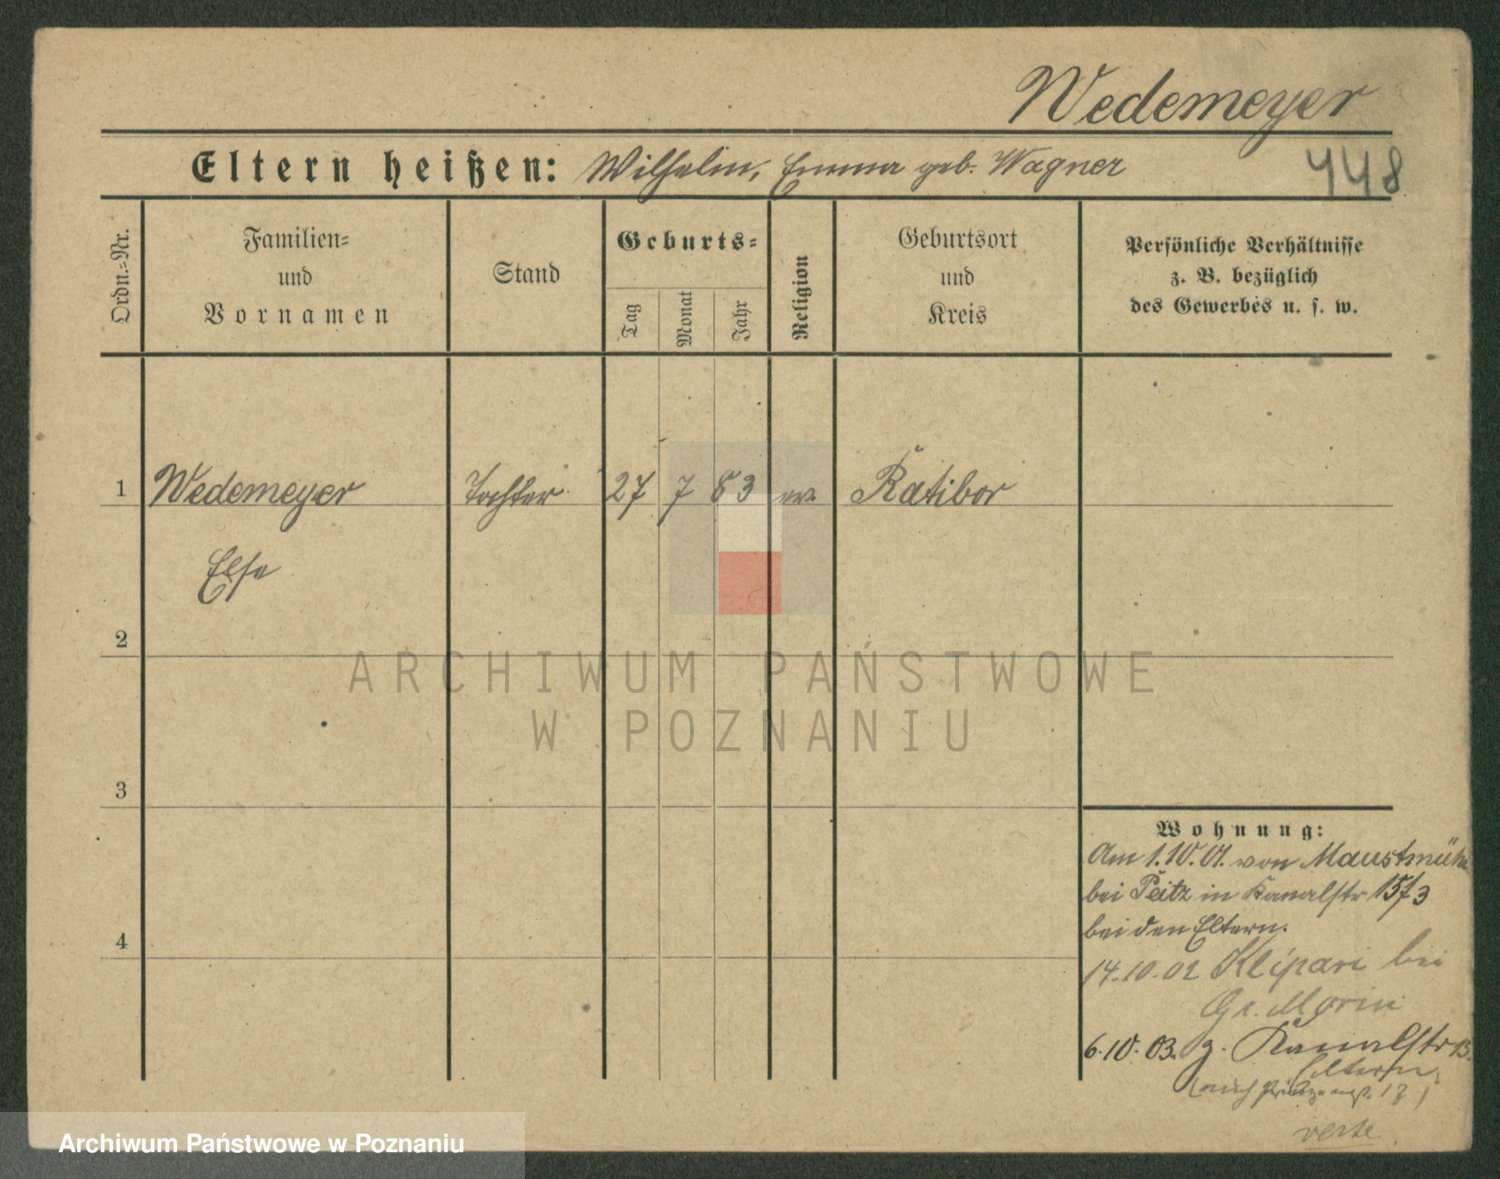 Wedemeyer
448
Eltern heißen: Wilhelm, Emma geb. Wagner
Ordn.-Nr.
Familien-
und
Vornamen
Stand
Geburts-
Tag
Monat
Jahr
Religion
Geburtsort
und
Kreis
Persönliche Verhältnisse
z. B. bezüglich
des Gewerbes u. s. w.
1 Wedemeyer Tochter 27 7 83 ev. Ratibor
Else
2
3
4
ARCHIWUM PAŃSTWOWE
W POZNANIU
Wohnung:
Am 1.10.01. von Maustmüh
bei Peitz in Kanalstr 15/3
bei den Eltern.
14.10.02 bei
Gr.
6.10.03. z. Kanalstr
Eltern
verte
Archiwum Państwowe w Poznaniu